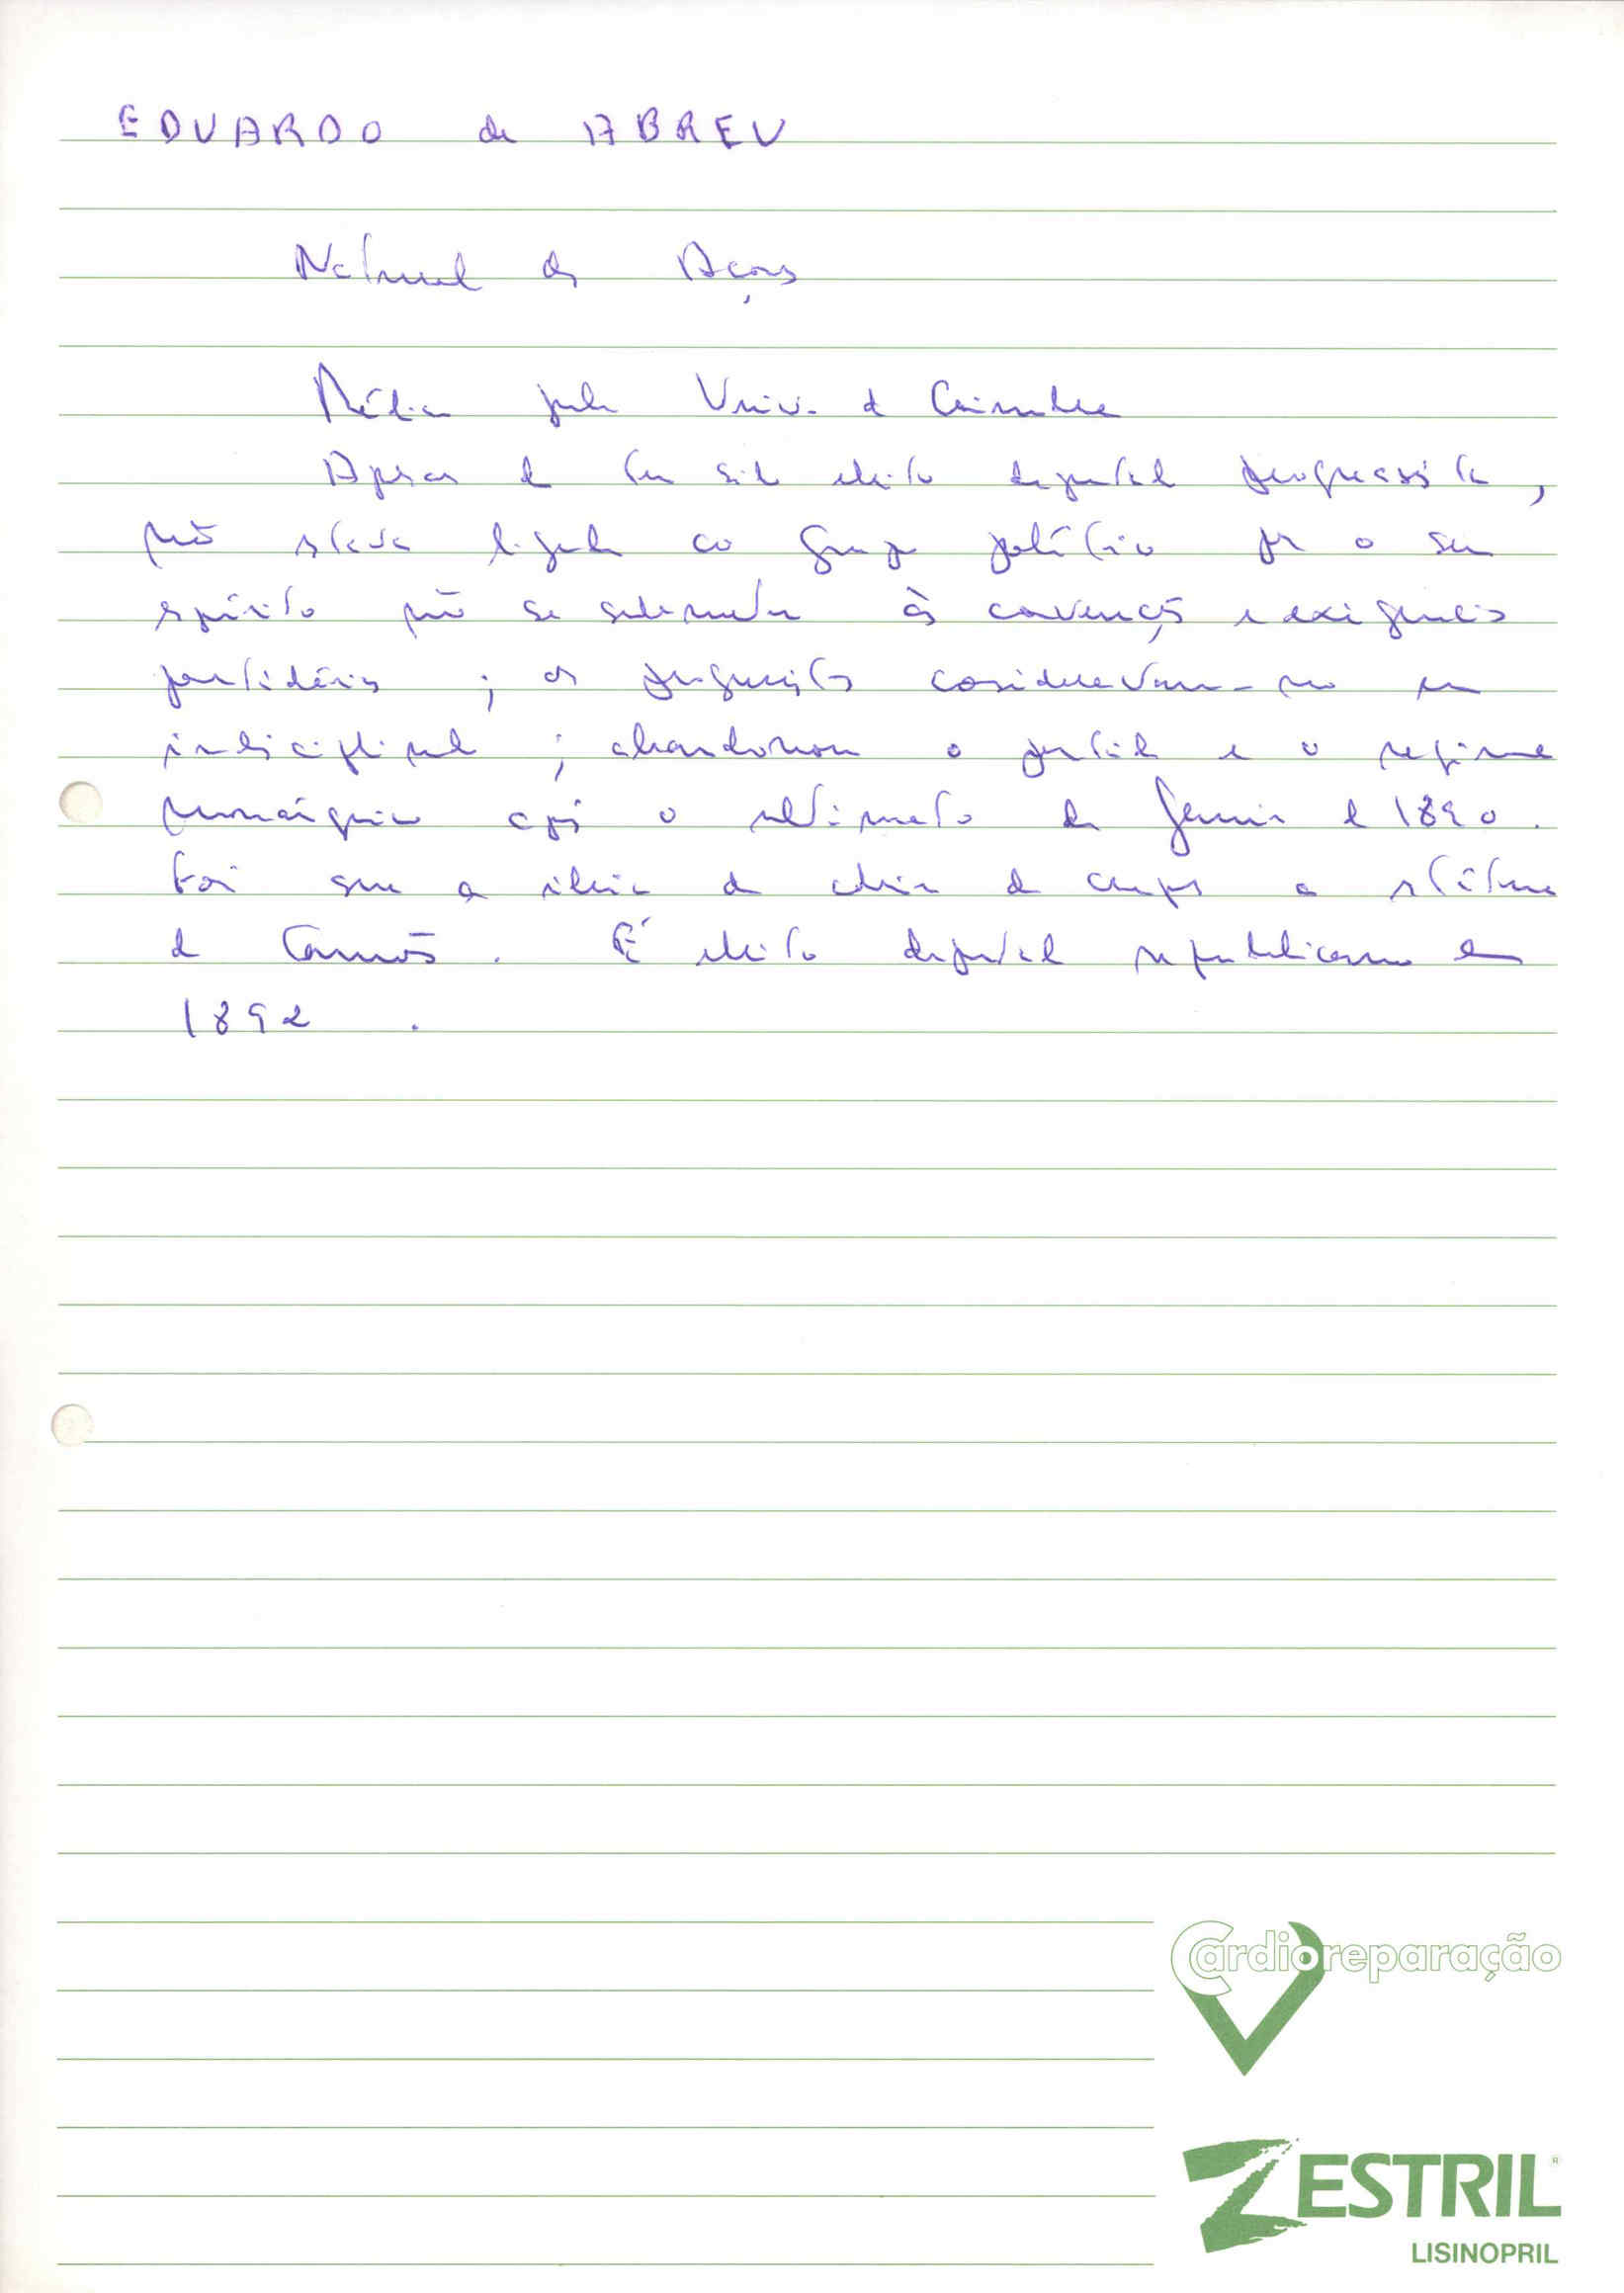 EDUARDO de ABREU
Natural dos Açores
Médico pela Univ. de Coimbra
Apesar de ter sido eleito deputado progressista,
não estava ligado ao grupo político pois o seu
espírito não se submetia às convenções e exigências
partidárias ; os progressistas consideravam-no um
indisciplinado ; abandonou o partido e o regime
monárquico após o ultimato de Janeiro de 1890.
Foi sua a ideia de cobrir de crepes a estátua
de Camões. É eleito deputado republicano em
1892.
Cardioreparação
ZESTRIL®
LISINOPRIL